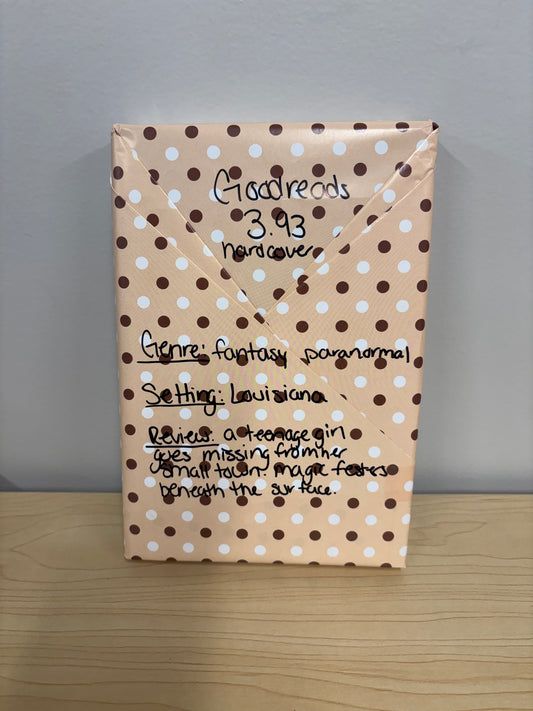 Goodreads
3.93
hardcover
Genre: fantasy paranormal
Setting: Louisiana
Review: a teenage girl
goes missing from her
small town. magic festers
beneath the surface.